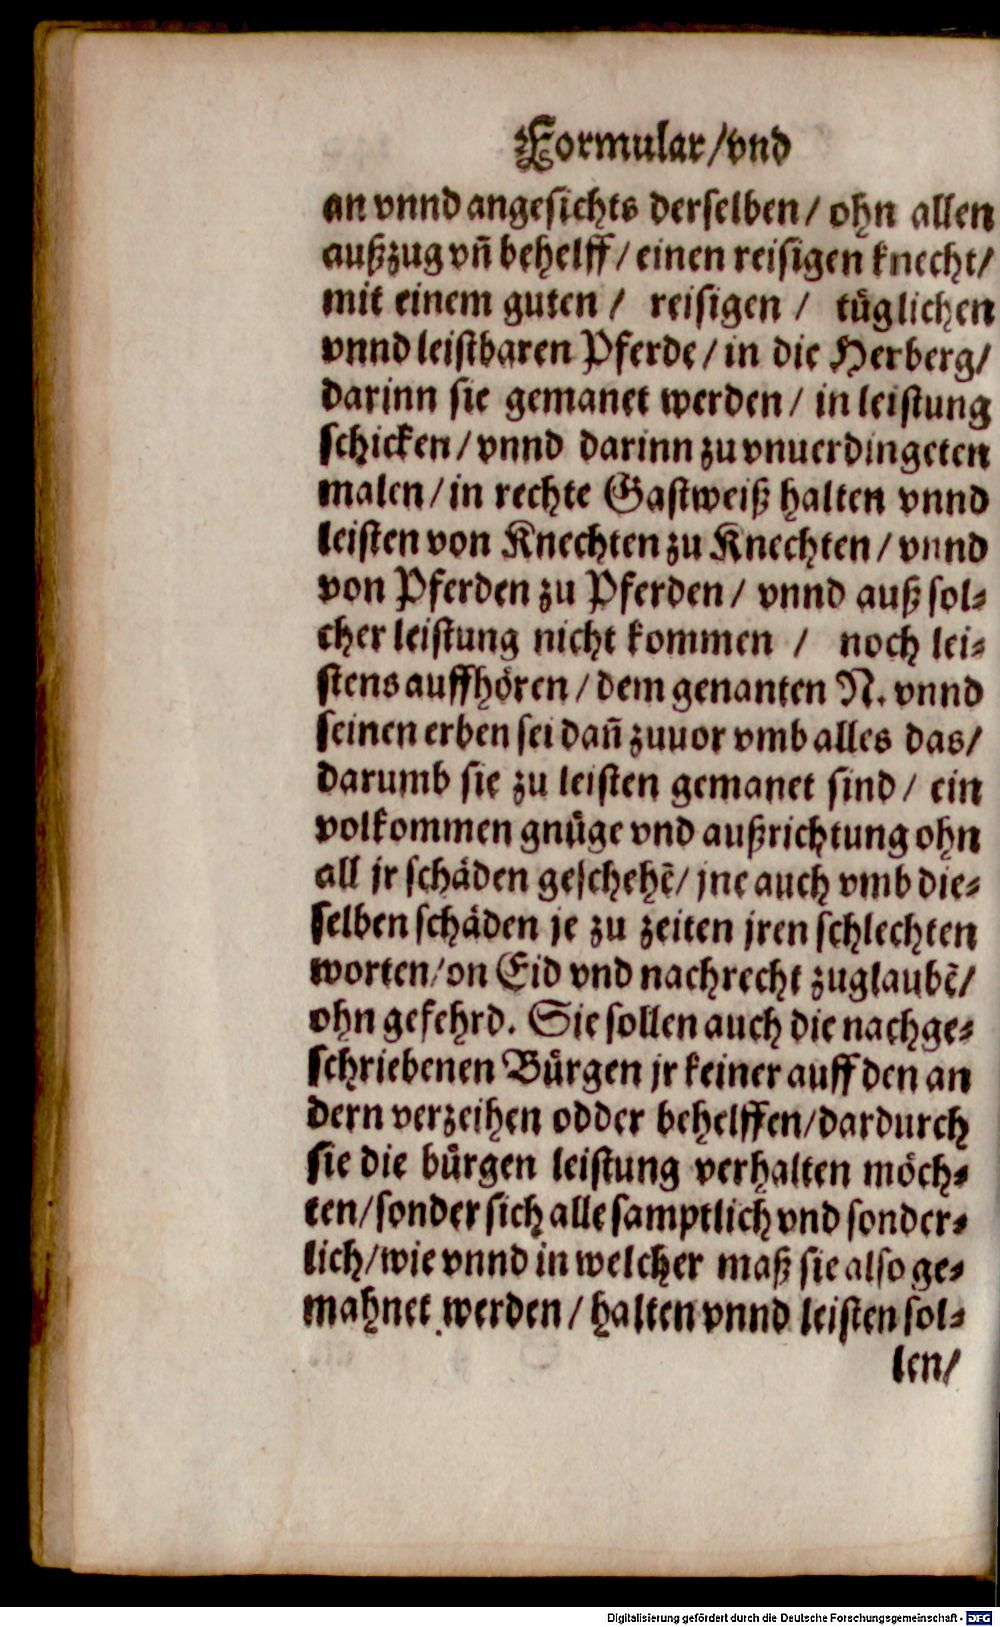 Formular/vnd
an vnnd angesichts derselben/ ohn allen
außzug vn̄ behelff/einen reisigen knecht/
mit einem guten / reisigen / tuͤglichen
vnnd leistbaren Pferde/in die Herberg/
darinn sie gemanet werden/ in leistung
schicken/vnnd darinn zu vnuerdingeten
malen/in rechte Gastweiß halten vnnd
leisten von Knechten zu Knechten/vnnd
von Pferden zu Pferden/ vnnd auß sol⸗
cher leistung nicht kommen / noch lei⸗
stens auffhoͤren/dem genanten N. vnnd
seinen erben sei dan̄ zuuor vmb alles das/
darumb sie zu leisten gemanet sind/ ein
volkommen gnuͤge vnd außrichtung ohn
all jr schaͤden geschehē/jne auch vmb die⸗
selben schaͤden je zu zeiten jren schlechten
worten/on Eid vnd nachrecht zuglaubē/
ohn gefehrd. Sie sollen auch die nachge⸗
schriebenen Buͤrgen jr keiner auff den an
dern verzeihen odder behelffen/dardurch
sie die buͤrgen leistung verhalten moͤch⸗
ten/sonder sich alle samptlich vnd sonder⸗
lich/wie vnnd in welcher maß sie also ge⸗
mahnet werden/halten vnnd leisten sol⸗
len/
Digitalisierung gefördert durch die Deutsche Forschungsgemeinschaft - DFG